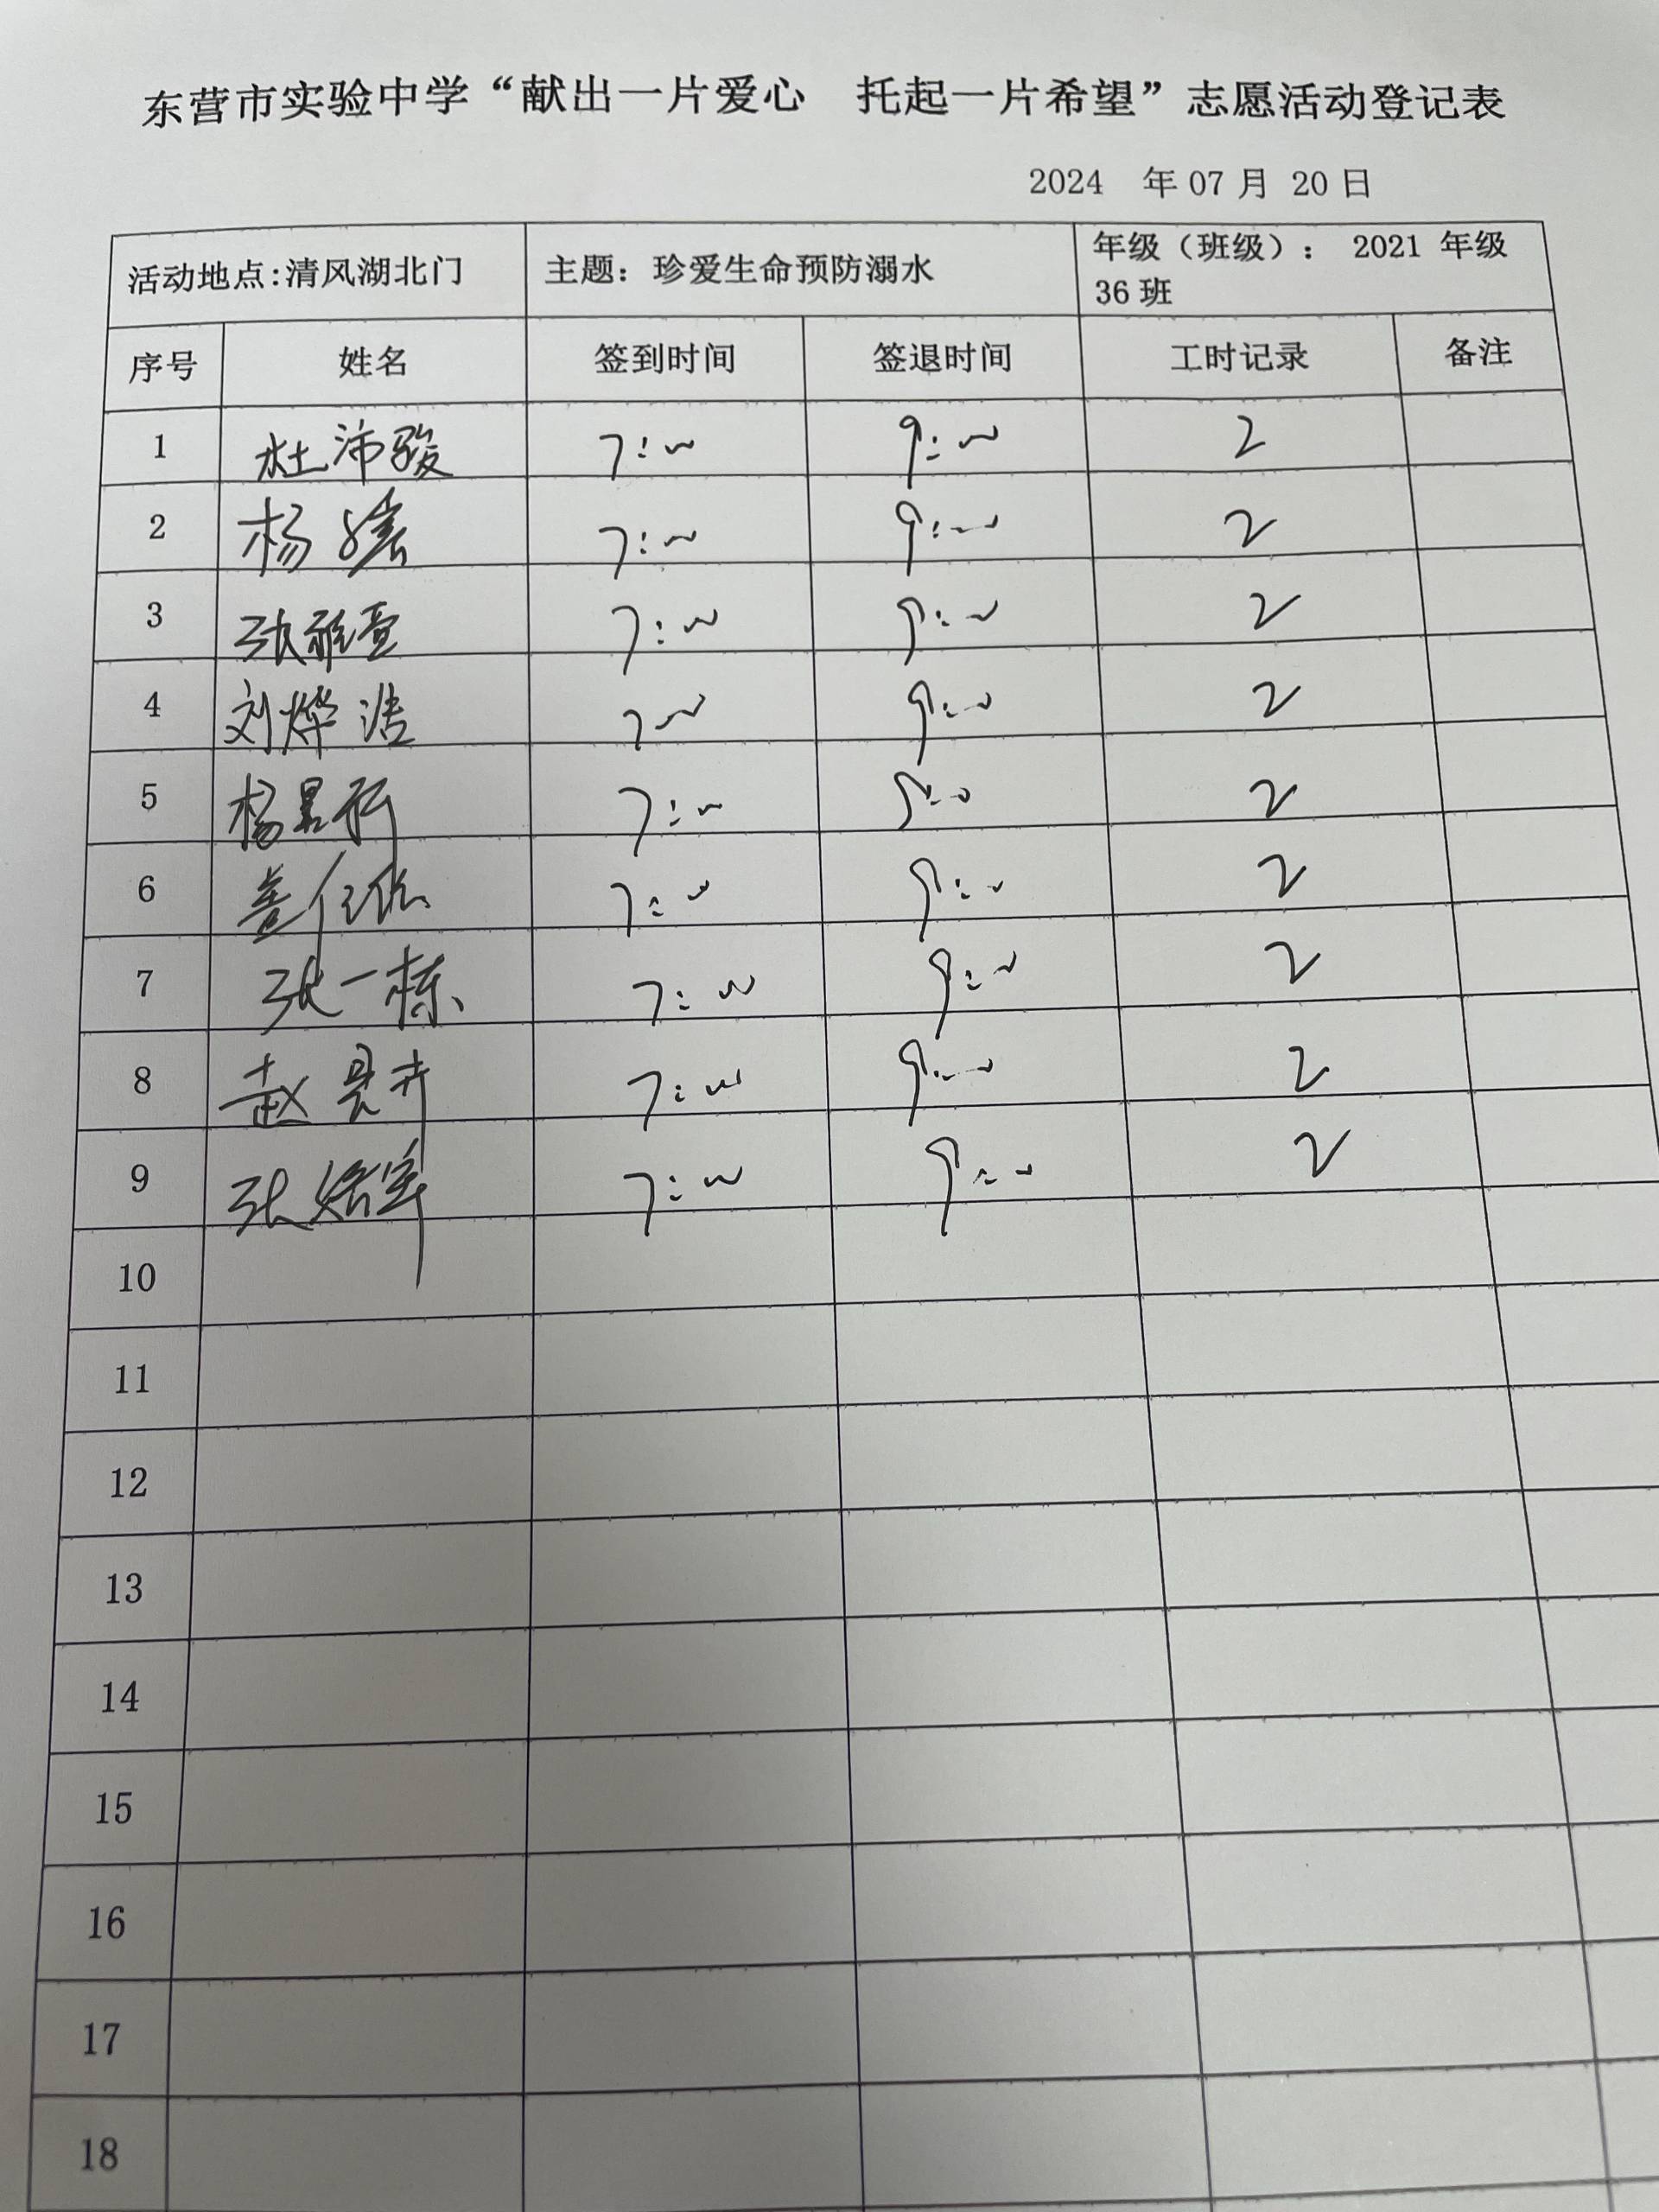 东营市实验中学“献出一片爱心 托起一片希望”志愿活动登记表
2024 年 07 月 20 日
活动地点:清风湖北门 主题：珍爱生命预防溺水 年级（班级）： 2021 年级
36 班
序号 姓名 签到时间 签退时间 工时记录 备注
1 杜沛骏 7:00 9:00 2
2 杨 7:00 9:00 2
3 张雅萱 7:00 9:00 2
4 刘烨浩 7:00 9:00 2
5 杨 7:00 9:00 2
6 7:00 9:00 2
7 张一栋 7:00 9:00 2
8 赵 7:00 9:00 2
9 张 7:00 9:00 2
10
11
12
13
14
15
16
17
18